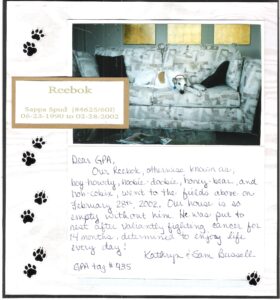 Reebok
Sappa Spud (84625/60F)
06-23-1990 to 02-28-2002
Dear GPA,
Our Reebok, otherwise known as,
boy-howdy, hoobie-doobie, honey-bear, and
, went to the fields above on
February 28th, 2002. Our house is so
empty without him. He was put to
rest after valiantly fighting cancer for
14 months, determined to enjoy life
every day!
Kathryn & Sam Bussell
GPA tag # 435